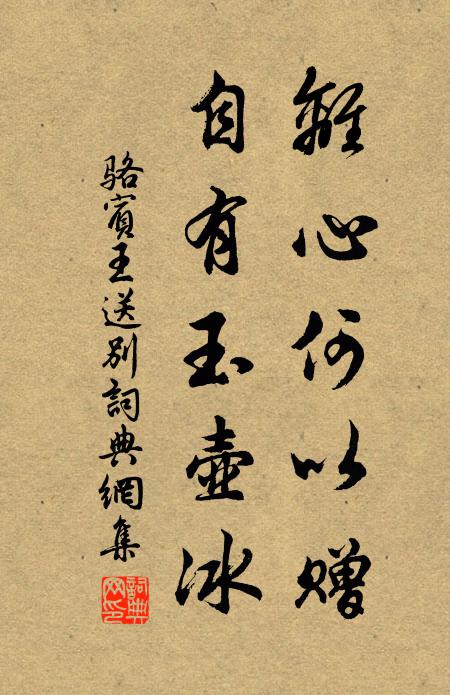 離心何以贈
自有玉壺冰
駱賓王送別詞典網集
詞典網印